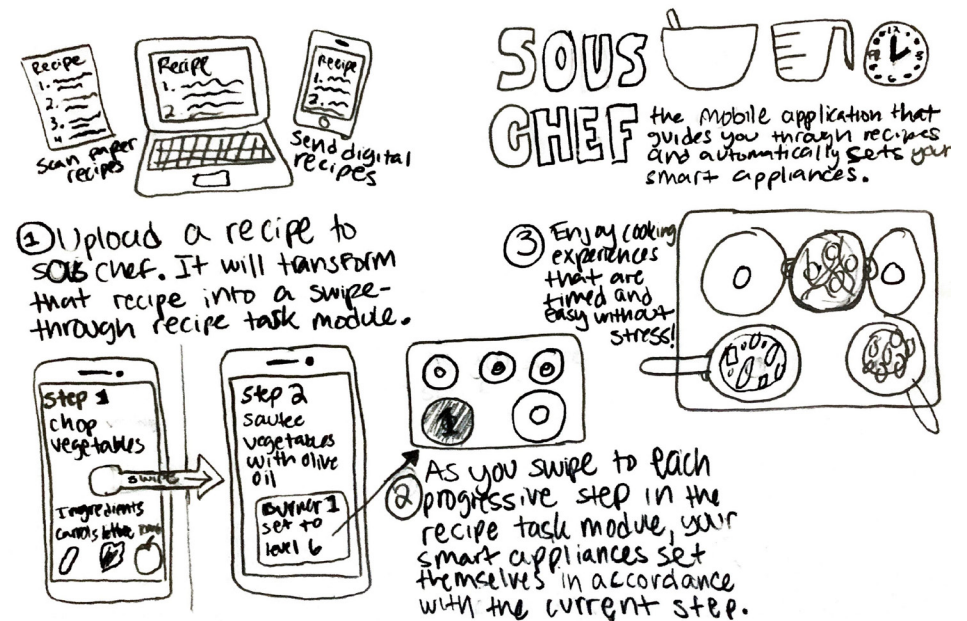 Recipe
1.
2.
3.
4
scan paper
recipes
Recipe
1.
2.
Recipe
1.
2.
Send digital
recipes
SOUS
CHEF
the mobile application that
guides you through recipes
and automatically sets your
smart appliances.
1 Upload a recipe to
sous chef. It will transform
that recipe into a swipe-
through recipe task module.
Step 1
chop
vegetables
swipe
Ingredients
carrots lettuce
Step 2
sautee
vegetables
with olive
oil
Burner 1
set to
level 6
1
2 As you swipe to each
progressive step in the
recipe task module, your
smart appliances set
themselves in accordance
with the current step.
3 Enjoy cooking
experiences
that are
timed and
easy without
stress!